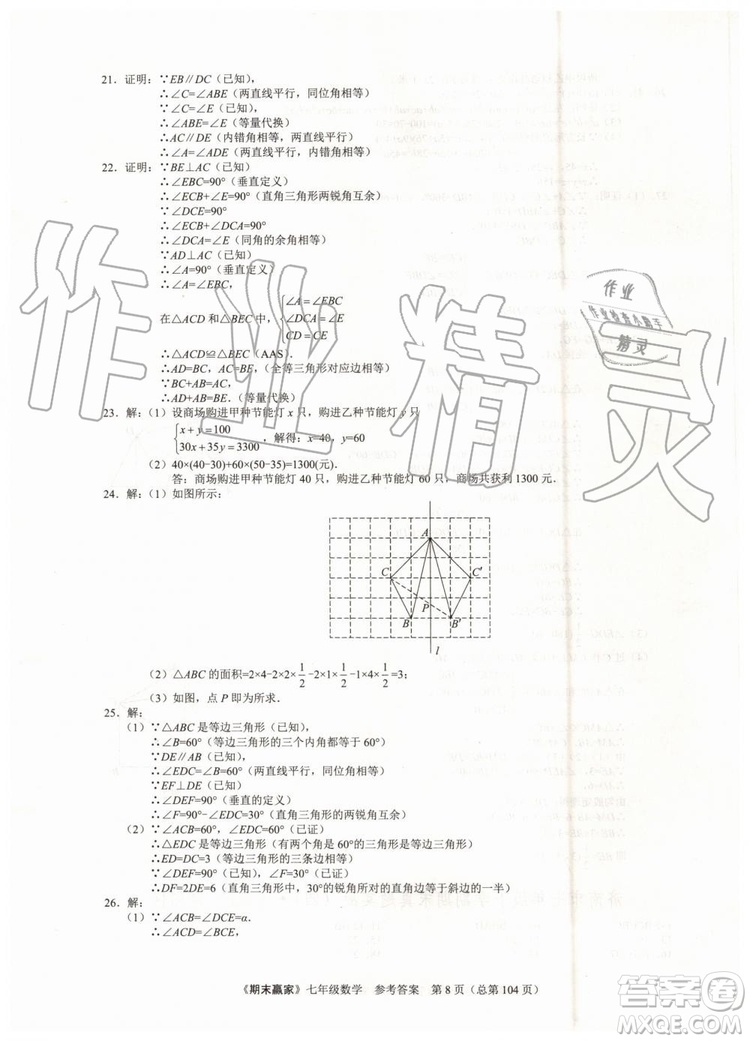 21. 证明：∵EB∥DC（已知），
∴∠C=∠ABE（两直线平行，同位角相等）
∵∠C=∠E（已知）
∴∠ABE=∠E（等量代换）
∴AC∥DE（内错角相等，两直线平行）
∴∠A=∠ADE（两直线平行，内错角相等）
22. 证明：∵BE⊥AC（已知）
∴∠EBC=90°（垂直定义）
∴∠ECB+∠E=90°（直角三角形两锐角互余）
∵∠DCE=90°
∴∠ECB+∠DCA=90°
∴∠DCA=∠E（同角的余角相等）
∵AD⊥AC（已知）
∴∠A=90°（垂直定义）
∴∠A=∠EBC，
在△ACD 和△BEC 中，{∠A=∠EBC
∠DCA=∠E
CD=CE
∴△ACD≌△BEC（AAS）.
∴AD=BC，AC=BE，（全等三角形对应边相等）
∵BC+AB=AC
∴AD+AB=BE.
23. 解：（1）设商场购进甲种节能灯 x 只，购进乙种节能灯 y 只
{x+y=100
30x+35y=3300，解得：x=40，y=60
（2）40×(40-30)+60×(50-35)=1300(元).
答：商场购进甲种节能灯 40 只，购进乙种节能灯 60 只，商场共获利 1300 元.
24. 解：（1）如图所示：
A
C C′
P
B B′
l
（2）△ABC 的面积=2×4-2×2×1/2-1×2×1/2-1×4×1/2=3；
（3）如图，点 P 即为所求.
25. 解：
（1）∵△ABC 是等边三角形（已知），
∴∠B=60°（等边三角形的三个内角都等于 60°）
∵DE∥AB（已知），
∴∠EDC=∠B=60°（两直线平行，同位角相等）
∵EF⊥DE（已知）
∴∠DEF=90°（垂直的定义）
∴∠F=90°-∠EDC=30°（直角三角形的两锐角互余）
（2）∵∠ACB=60°，∠EDC=60°（已证）
∴△EDC 是等边三角形（有两个角是 60°的三角形是等边三角形）
∴ED=DC=3（等边三角形的三条边相等）
∵∠DEF=90°，∠F=30°（已证）
∴DF=2DE=6（直角三角形中，30°的锐角所对直角边等于斜边的一半）
26. 解：
（1）∵∠ACB=∠DCE=α.
∴∠ACD=∠BCE，
《期末赢家》七年级数学 参考答案 第 8 页（总第 104 页）
作业精灵
作业
作业检查小助手
精灵
答案圈
MXQE.COM